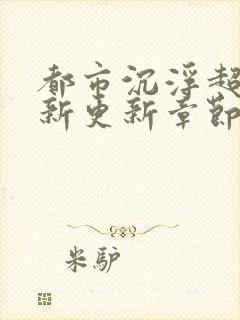 都市沉浮超
新更新章節
米驢